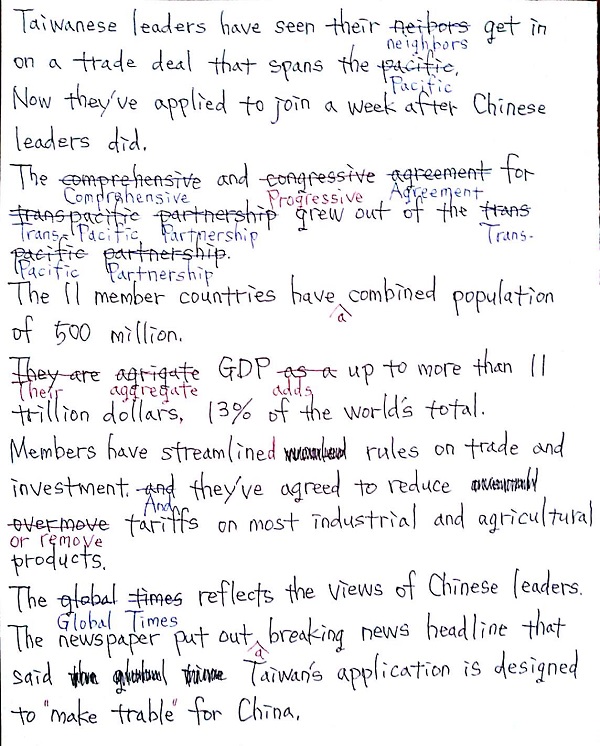 Taiwanese leaders have seen their neibors get in
neighbors
on a trade deal that spans the pacific.
Pacific
Now they've applied to join a week after Chinese
leaders did.
The comprehensive and congressive agreement for
Comprehensive Progressive Agreement
transpacific partnership grew out of the trans
Trans-Pacific Partnership Trans-
pacific partnership.
Pacific Partnership
The 11 member countries have combined population
a
of 500 million.
They are agrigate GDP as a up to more than 11
Their aggregate adds
trillion dollars, 13% of the world's total.
Members have streamlined rules on trade and
investment. and they've agreed to reduce
And
overmove tariffs on most industrial and agricultural
or remove
products.
The global times reflects the views of Chinese leaders.
Global Times
The newspaper put out breaking news headline that
a
said Taiwan's application is designed
to "make trable" for China.